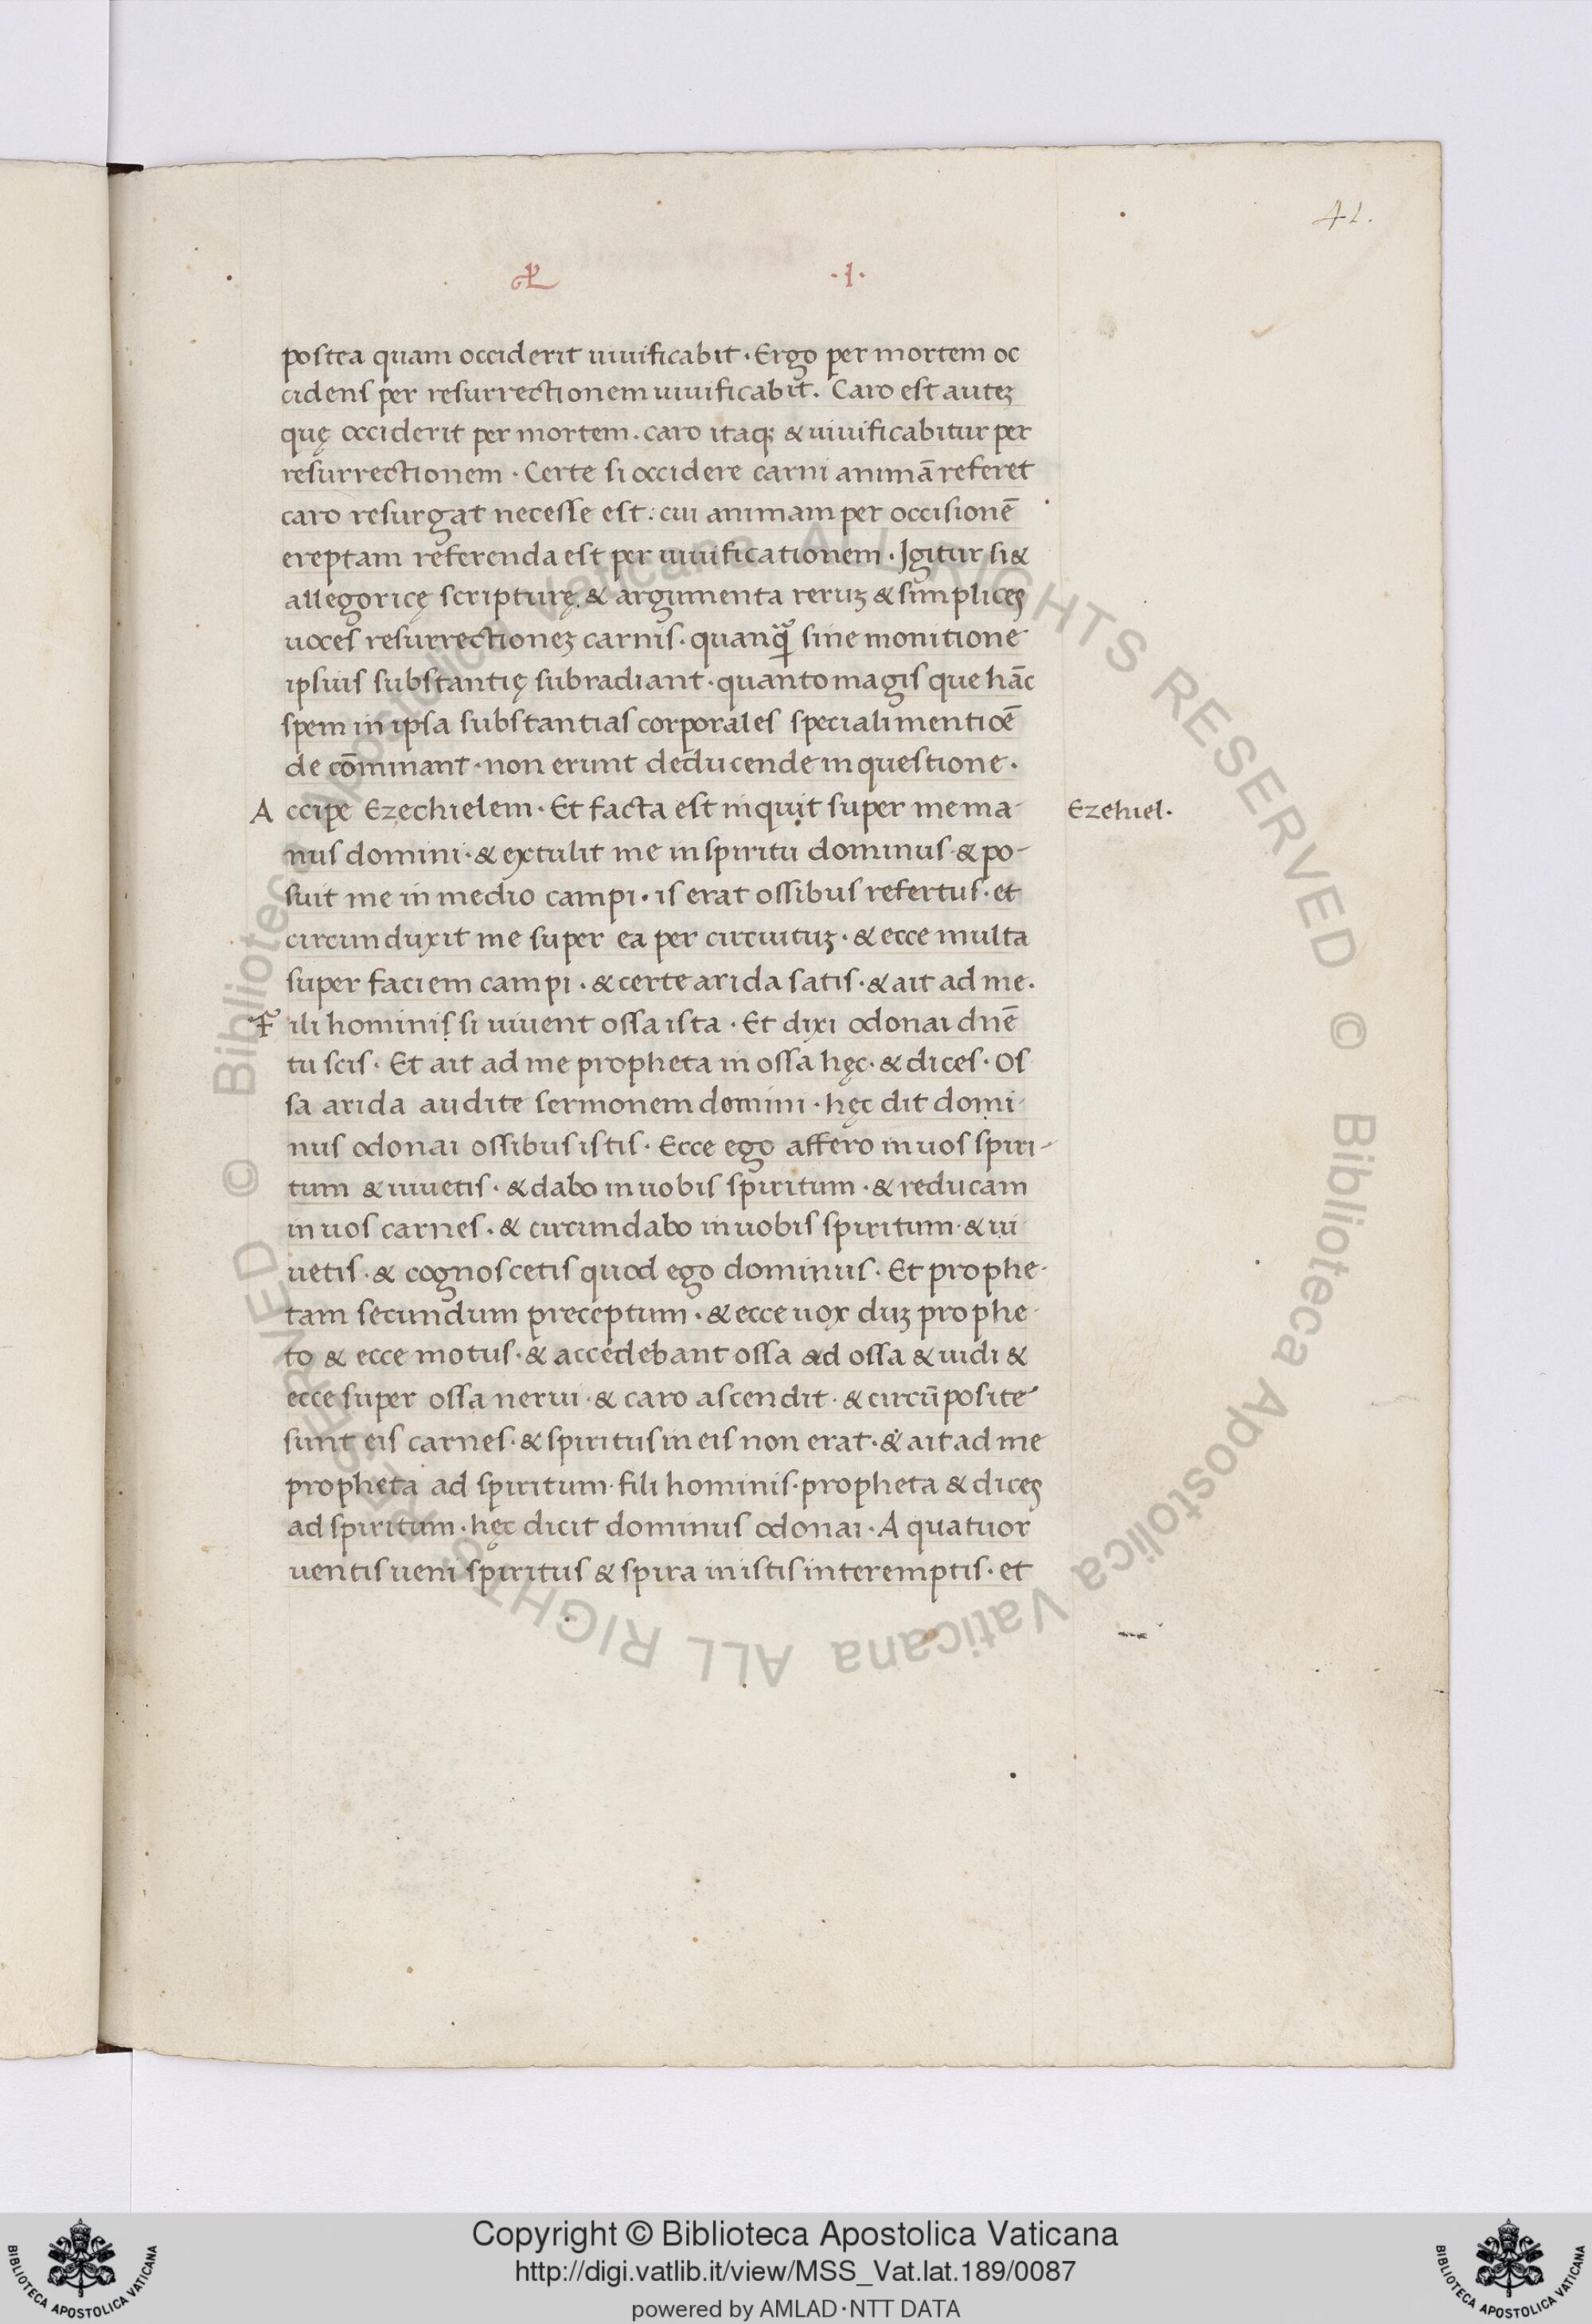 41.
.I.
postea quam occiderit uiuificabit · Ergo per mortem oc
cidens per resurrectionem uiuificabit. Caro est auteʒ
quę occiderit per mortem. caro itaqʒ & uiuificabitur per
resurrectionem · Certe si occidere carni animā referet
caro resurgat necesse est: cui animam per occisionē
ereptam referenda est per uiuificationem · Igitur si &
allegoricę scripturę & argumenta reruʒ & simplices
uoces resurrectioneʒ carnis · quanqꝫ sine monitione
ipsius substantię subradiant · quanto magis que hāc
spem in ipsa substantias corporales speciali mentiōe
de cōminant · non erunt deducende in questione.
Accipe Ezechielem · Et facta est inquit super me ma-
Ezehiel.
nus domini · & extulit me in spiritu dominus · & po-
suit me in medio campi · is erat ossibus refertus · et
circunduxit me super ea per circuituʒ · & ecce multa
super faciem campi · & certe arida satis · & ait ad me.
Fili hominis si uiuent ossa ista · Et dixi odonai dnē
tu scis · Et ait ad me propheta in ossa hęc · & dices · Os
sa arida audite sermonem domini · hęc dit domi-
nus odonai ossibus istis · Ecce ego affero in uos spiri-
tum & uiuetis · & dabo in uobis spiritum · & reducam
in uos carnes · & circundabo in uobis spiritum · & ui
uetis · & cognoscetis quod ego dominus · Et prophe-
tam secundum preceptum · & ecce uox duʒ prophe-
to & ecce motus · & accedebant ossa ad ossa & uidi &
ecce super ossa nerui · & caro ascendit · & circūposite
sunt eis carnes · & spiritus in eis non erat · & ait ad me
propheta ad spiritum · fili hominis · propheta & dices
ad spiritum · hęc dicit dominus odonai · A quatuor
uentis ueni spiritus & spira in istis interemptis · et
© Biblioteca Apostolica Vaticana ALL RIGHTS RESERVED © Biblioteca Apostolica Vaticana ALL RIGHTS RESERVED
BIBLIOTECA APOSTOLICA VATICANA
Copyright © Biblioteca Apostolica Vaticana
http://digi.vatlib.it/view/MSS_Vat.lat.189/0087
powered by AMLAD·NTT DATA
BIBLIOTECA APOSTOLICA VATICANA